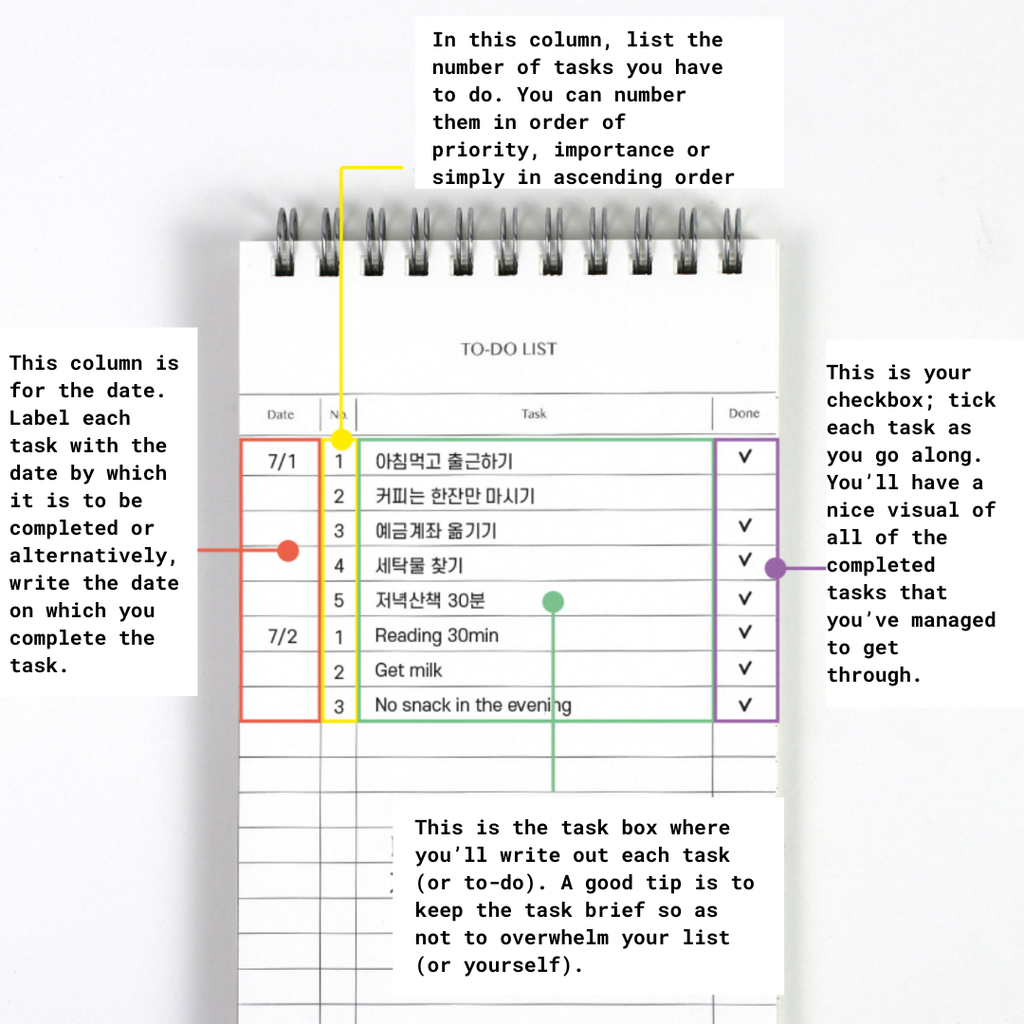 In this column, list the
number of tasks you have
to do. You can number
them in order of
priority, importance or
simply in ascending order
TO-DO LIST
Date No. Task Done
7/1 1 아침먹고 출근하기 ✓
2 커피는 한잔만 마시기
3 예금계좌 옮기기 ✓
4 세탁물 찾기 ✓
5 저녁산책 30분 ✓
7/2 1 Reading 30min ✓
2 Get milk ✓
3 No snack in the evening ✓
This column is
for the date.
Label each
task with the
date by which
it is to be
completed or
alternatively,
write the date
on which you
complete the
task.
This is your
checkbox; tick
each task as
you go along.
You’ll have a
nice visual of
all of the
completed
tasks that
you’ve managed
to get
through.
This is the task box where
you’ll write out each task
(or to-do). A good tip is to
keep the task brief so as
not to overwhelm your list
(or yourself).